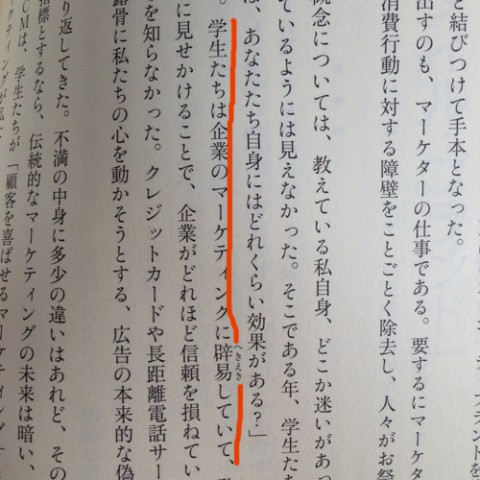 と結びつけて手本となった。
出すのも、マーケターの仕事である。要するにマーケタ
消費行動に対する障壁をことごとく除去し、人々がお祭
概念については、教えている私自身、どこか迷いがあっ
ているようには見えなかった。そこである年、学生たち
は、あなたたち自身にはどれくらい効果がある?」
。学生たちは企業のマーケティングに辟易していて、
へきえき
に見せかけることで、企業がどれほど信頼を損ねてい
を知らなかった。クレジットカードや長距離電話サー
露骨に私たちの心を動かそうとする、広告の本来的な偽
り返してきた。不満の中身に多少の違いはあれど、その
指標とするなら、伝統的なマーケティングの未来は暗い、
CMは、学生たちが「顧客を喜ばせるマーケティング